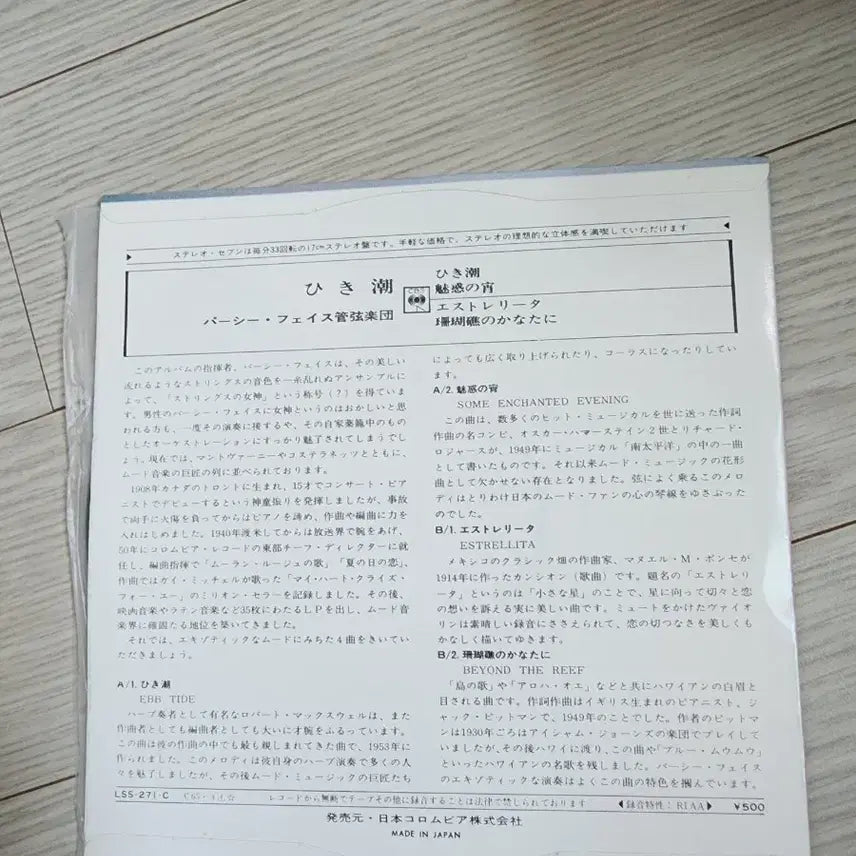 ステレオ・セブンは毎分33回転の17cmステレオ盤です。手軽な価格で、ステレオの理想的な立体感を満喫していただけます
ひき潮
パーシー・フェイス管弦楽団
CBS
ひき潮
魅惑の宵
エストレリータ
珊瑚礁のかなたに
このアルバムの指揮者、パーシー・フェイスは、その美しい
流れるようなストリングスの音色を一糸乱れぬアンサンブルに
よって、「ストリングスの女神」という称号(?)を得ていま
す。男性のパーシー・フェイスに女神というのはおかしいと思
われる方も、一度その演奏に接するや、その自家薬籠中のもの
としたオーケストレーションにすっかり魅了されてしまうでし
ょう。現在では、マントヴァーニーやコステラネッツとともに、
ムード音楽の巨匠の列に並べられております。
1908年カナダのトロントに生まれ、15才でコンサート・ピア
ニストでデビューするという神童振りを発揮しましたが、事故
で両手に火傷を負ってからはピアノを諦め、作曲や編曲に力を
入れはじめました。1940年渡米してからは放送界で腕をあげ、
50年にコロムビア・レコードの東部チーフ・ディレクターに就
任し、編曲指揮で「ムーラン・ルージュの歌」「夏の日の恋」、
作曲ではガイ・ミッチェルが歌った「マイ・ハート・クライズ・
フォー・ユー」のミリオン・セラーを記録しました。その後、
映画音楽やラテン音楽など35枚にわたるLPを出し、ムード音
楽界に確固たる地位を築いてきました。
それでは、エキゾティックなムードにみちた4曲をきいてい
ただきましょう。
A/1. ひき潮
EBB TIDE
ハープ奏者として有名なロバート・マックスウェルは、また
作曲者としても編曲者としても大いに才腕をふるっています。
この曲は彼の作曲の中でも最も親しまれてきた曲で、1953年に
作られました。このメロディは彼自身のハープ演奏で多くの人
々を魅了しましたが、その後ムード・ミュージックの巨匠たち
によっても広く取り上げられたり、コーラスになったりしてい
ます。
A/2. 魅惑の宵
SOME ENCHANTED EVENING
この曲は、数多くのヒット・ミュージカルを世に送った作詞
作曲の名コンビ、オスカー・ハマースタイン2世とリチャード・
ロジャースが、1949年にミュージカル「南太平洋」の中の一曲
として書いたものです。それ以来ムード・ミュージックの花形
曲として欠かせない存在となりました。弦によく乗るこのメロ
ディはとりわけ日本のムード・ファンの心の琴線をゆさぶった
のでした。
B/1. エストレリータ
ESTRELLITA
メキシコのクラシック畑の作曲家、マヌエル・M・ポンセが
1914年に作ったカンシオン(歌曲)です。題名の「エストレリ
ータ」というのは「小さな星」のことで、星に向って切々と恋
の想いを訴える実に美しい曲です。ミュートをかけたヴァイオ
リンは素晴しい録音にささえられて、恋の切なさを美しくも
かなしく描いてゆきます。
B/2. 珊瑚礁のかなたに
BEYOND THE REEF
「島の歌」や「アロハ・オエ」などと共にハワイアンの白眉と
目される曲です。作詞作曲はイギリス生まれのピアニスト、ジ
ャック・ピットマンで、1949年のことでした。作者のピットマ
ンは1930年ごろはアイシャム・ジョーンズの楽団でプレイして
いましたが、その後ハワイに渡り、この曲や「ブルー・ムウムウ」
といったハワイアンの名歌を残しました。パーシー・フェイス
のエキゾティックな演奏はよくこの曲の特色を掴んでいます。
LSS-271-C
レコードから無断でテープその他に録音することは法律で禁じられております
◀録音特性:RIAA▶
¥500
発売元・日本コロムビア株式会社
MADE IN JAPAN